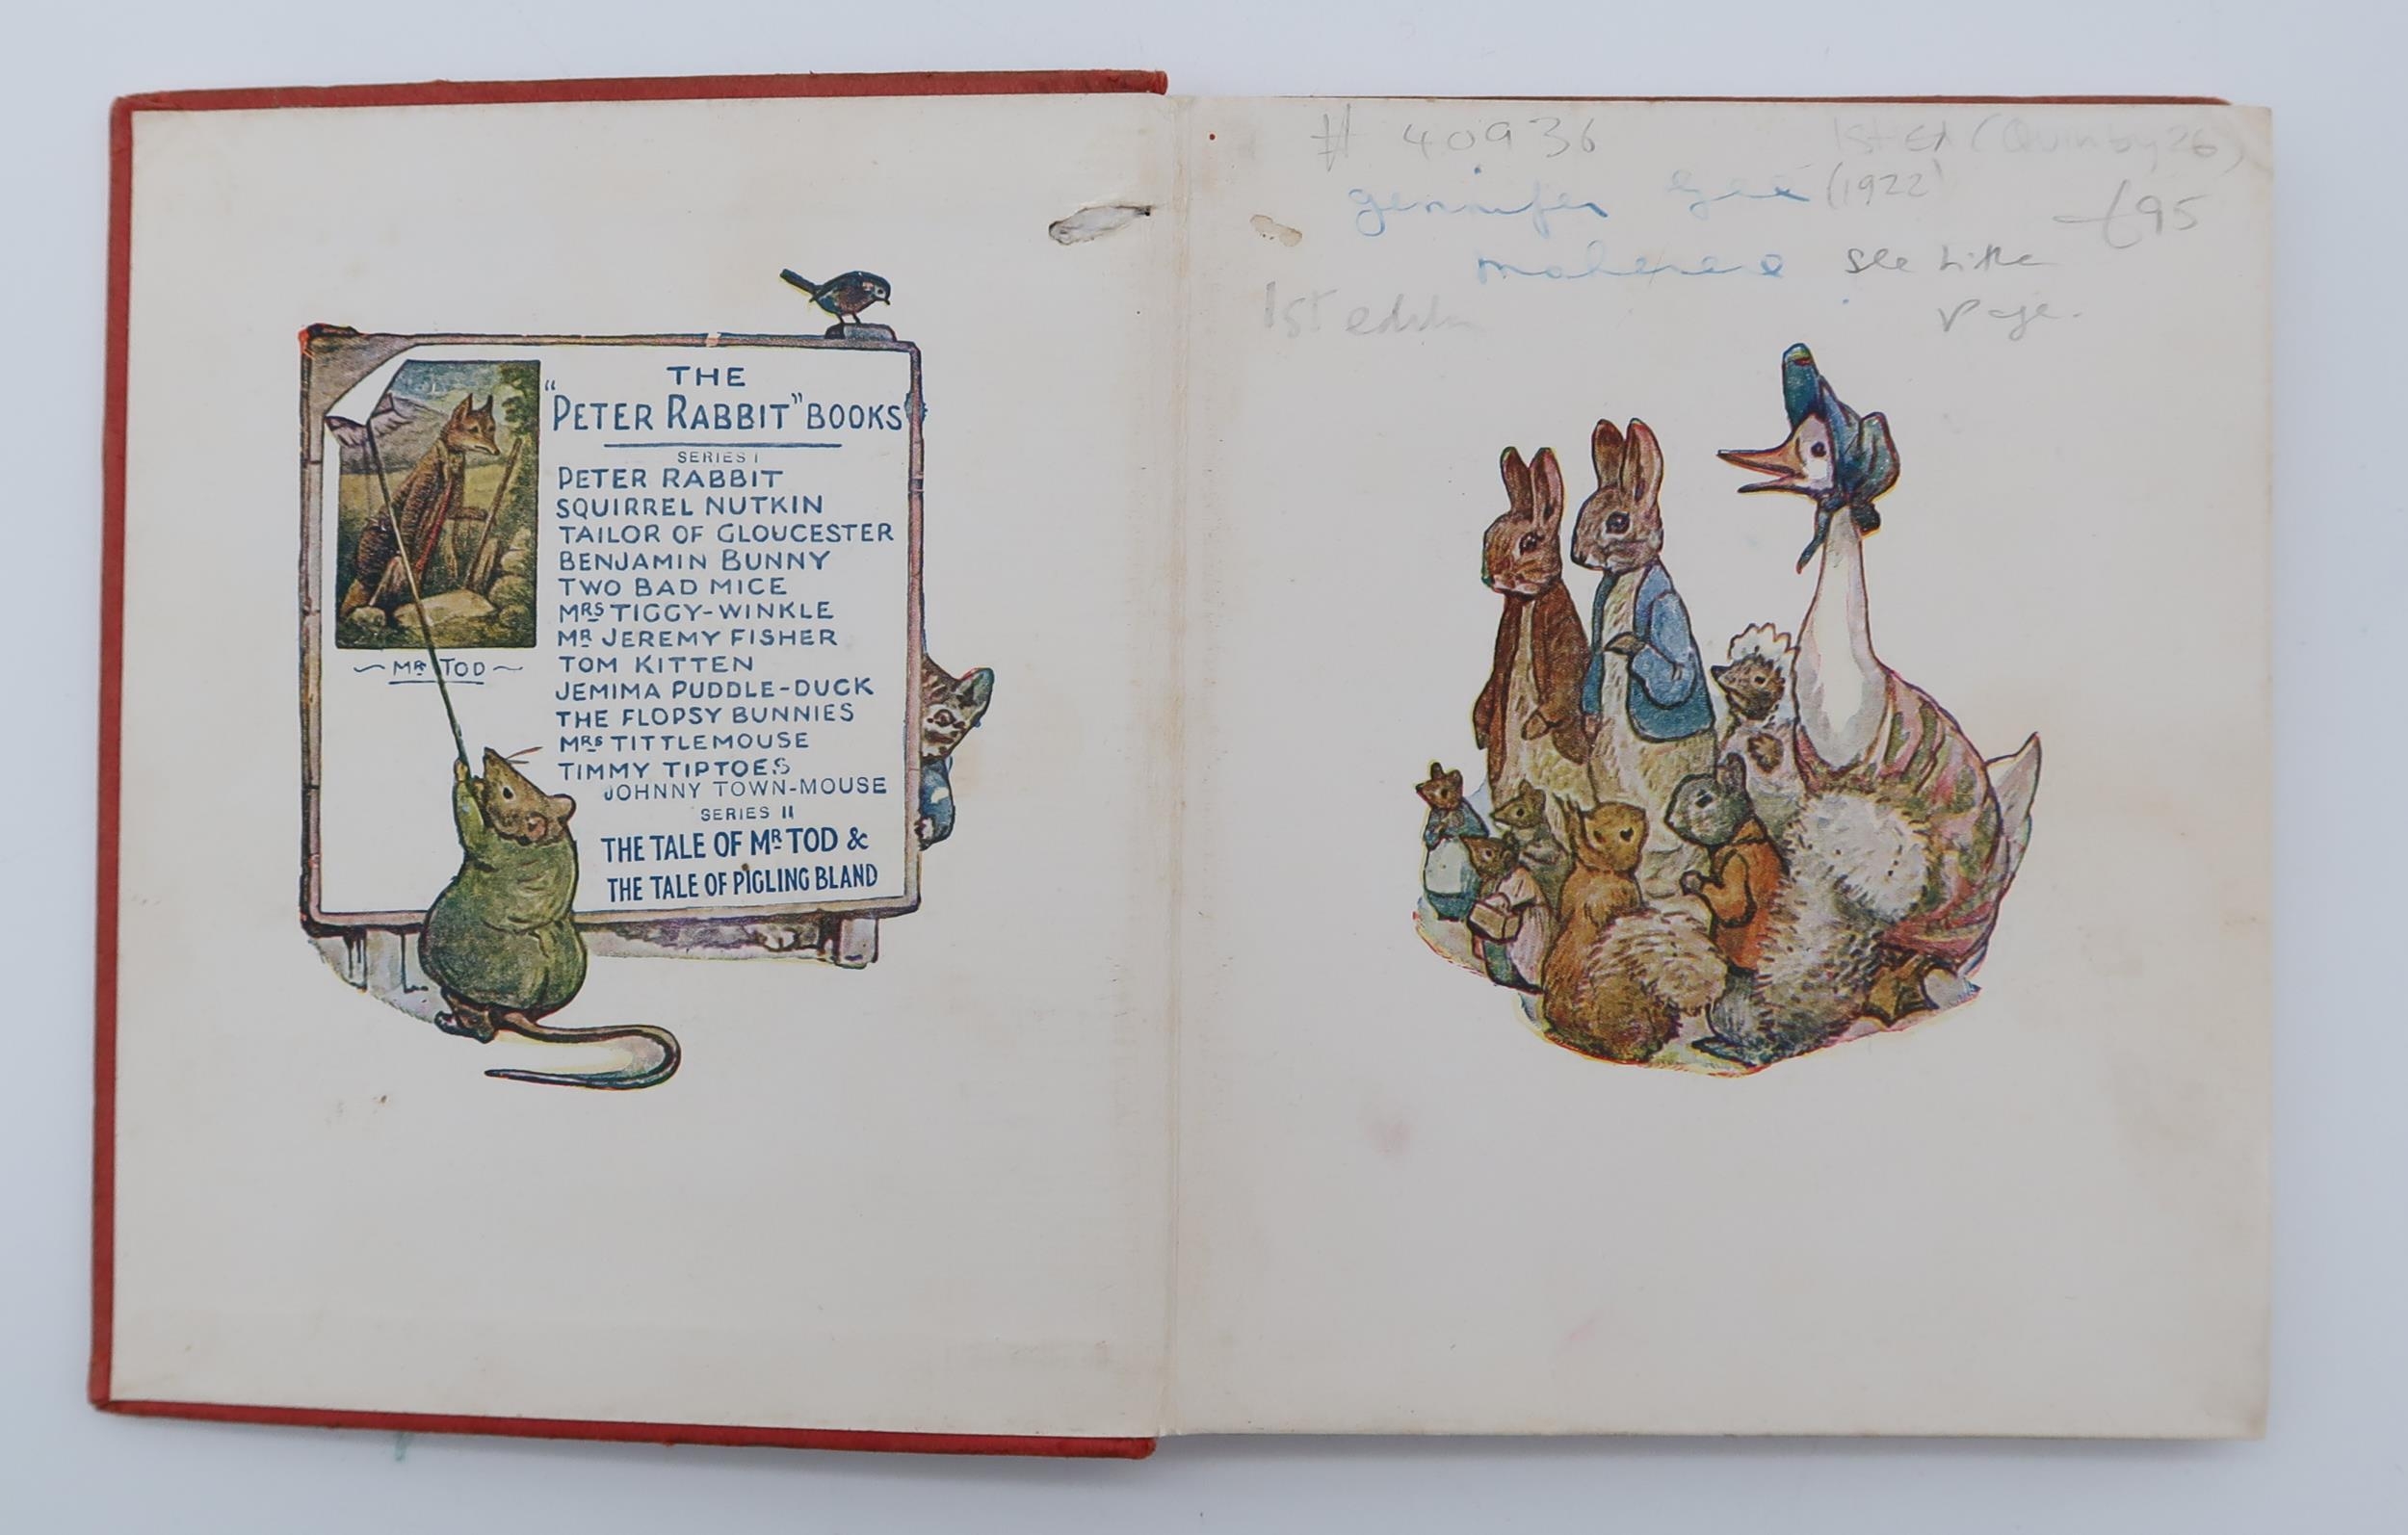 THE
"PETER RABBIT" BOOKS
SERIES I
PETER RABBIT
SQUIRREL NUTKIN
TAILOR OF GLOUCESTER
BENJAMIN BUNNY
TWO BAD MICE
MRS TIGGY-WINKLE
MR JEREMY FISHER
TOM KITTEN
JEMIMA PUDDLE-DUCK
THE FLOPSY BUNNIES
MRS TITTLEMOUSE
TIMMY TIPTOES
JOHNNY TOWN-MOUSE
SERIES II
THE TALE OF MR TOD &
THE TALE OF PIGLING BLAND
~ MR TOD ~
# 40936 1st Ed (Quinby 26)
Jennifer (1922) £95
see title
page.
1st edn